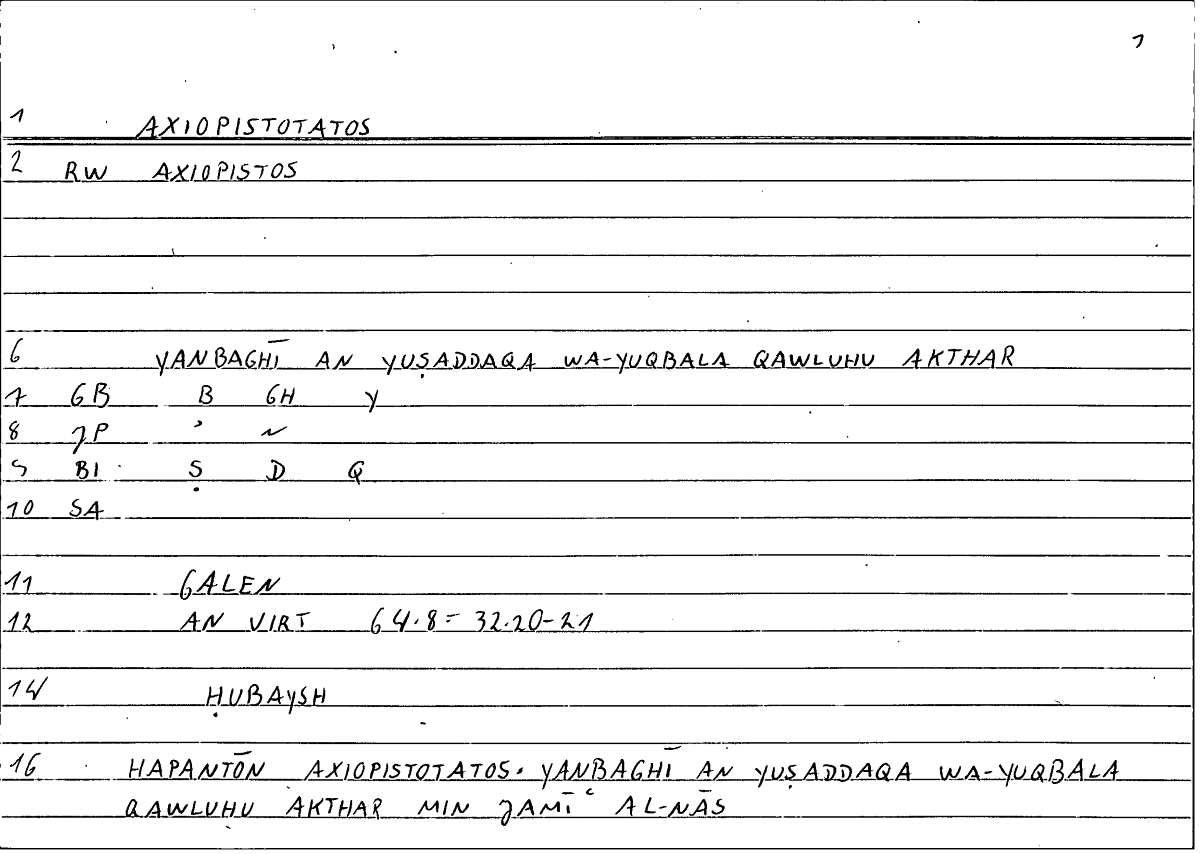 1
1 AXIOPISTOTATOS
2 RW AXIOPISTOS
6 YANBAGHĪ AN YUṢADDAQA WA-YUQBALA QAWLUHU AKTHAR
7 GB B GH Y
8 JP ʾ N
9 BI Ṣ D Q
10 SA
11 GALEN
12 AN VIRT 64.8 = 32.20-21
14 ḤUBAYSH
16 HAPANTŌN AXIOPISTOTATOS. YANBAGHĪ AN YUṢADDAQA WA-YUQBALA
QAWLUHU AKTHAR MIN JAMĪʿ AL-NĀS